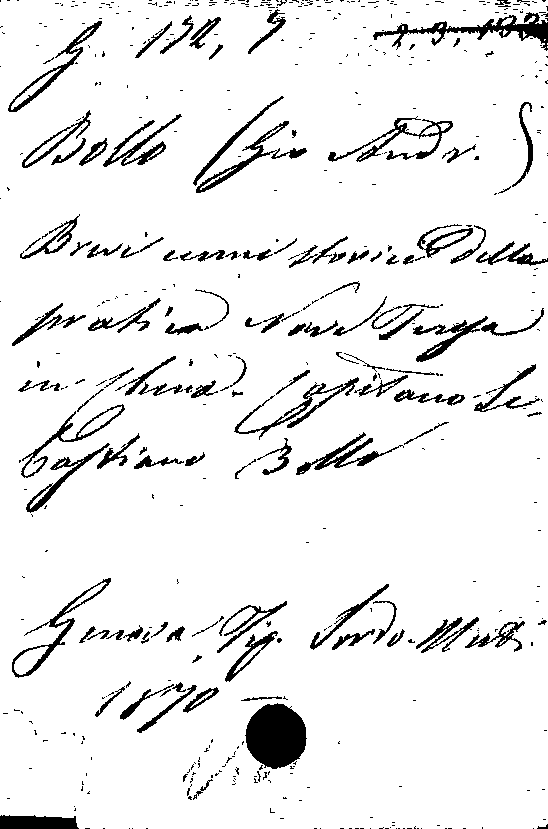 G. 172, 7 2. 3, 133
Bollo (Gio Andr.)
Brevi cenni storici della
pratica Nave Teresa
in China. Capitano Se-
bastiano Bollo
Genova, Tip. Sordo-Muti.
1870 —